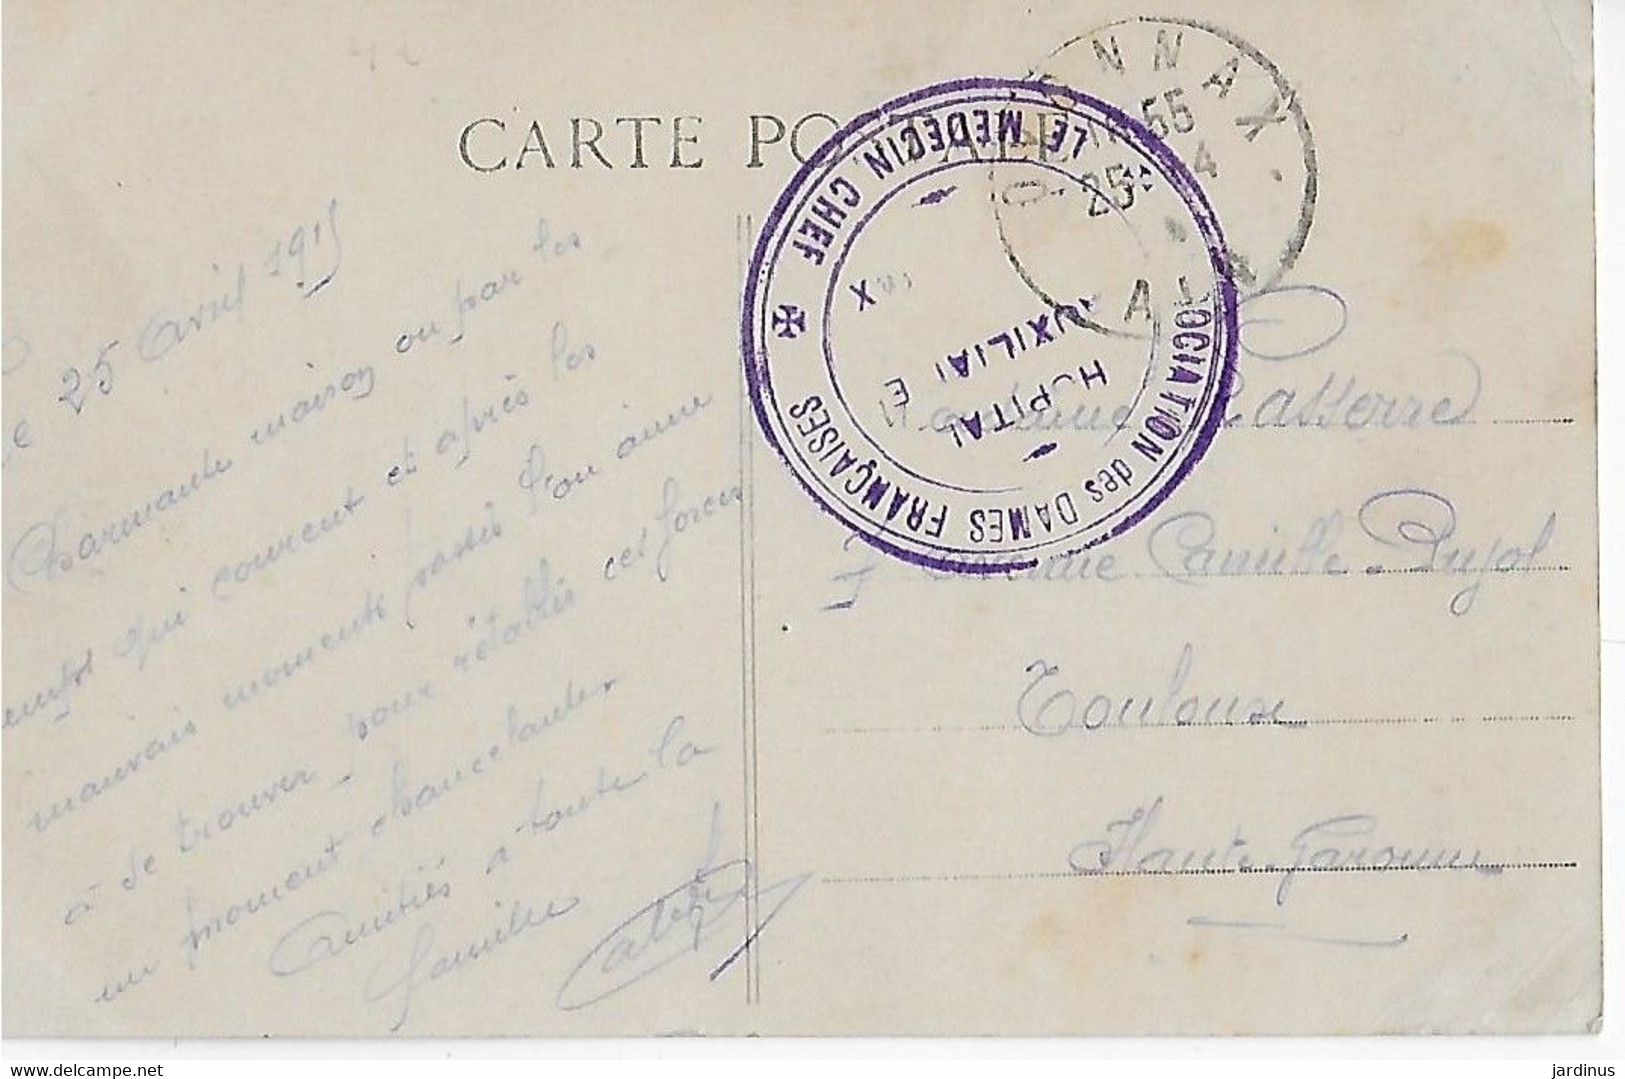 CARTE POSTALE
25 avril 1915
Charmante maison ou par les
temps qui courent et après les
mauvais moments passés l'on aime
à se trouver pour rétablir ces forces
un moment chancelantes
Amitiés a toute la
famille
OYONNAX
55
25 4
AIN
LE MEDECIN CHEF
ASSOCIATION des DAMES FRANÇAISES
HOPITAL
AUXILIAIRE
Madame Lasserre
7 Avenue Camille-Pujol
Toulouse
Haute-Garonne
delcampe.net
jardinus